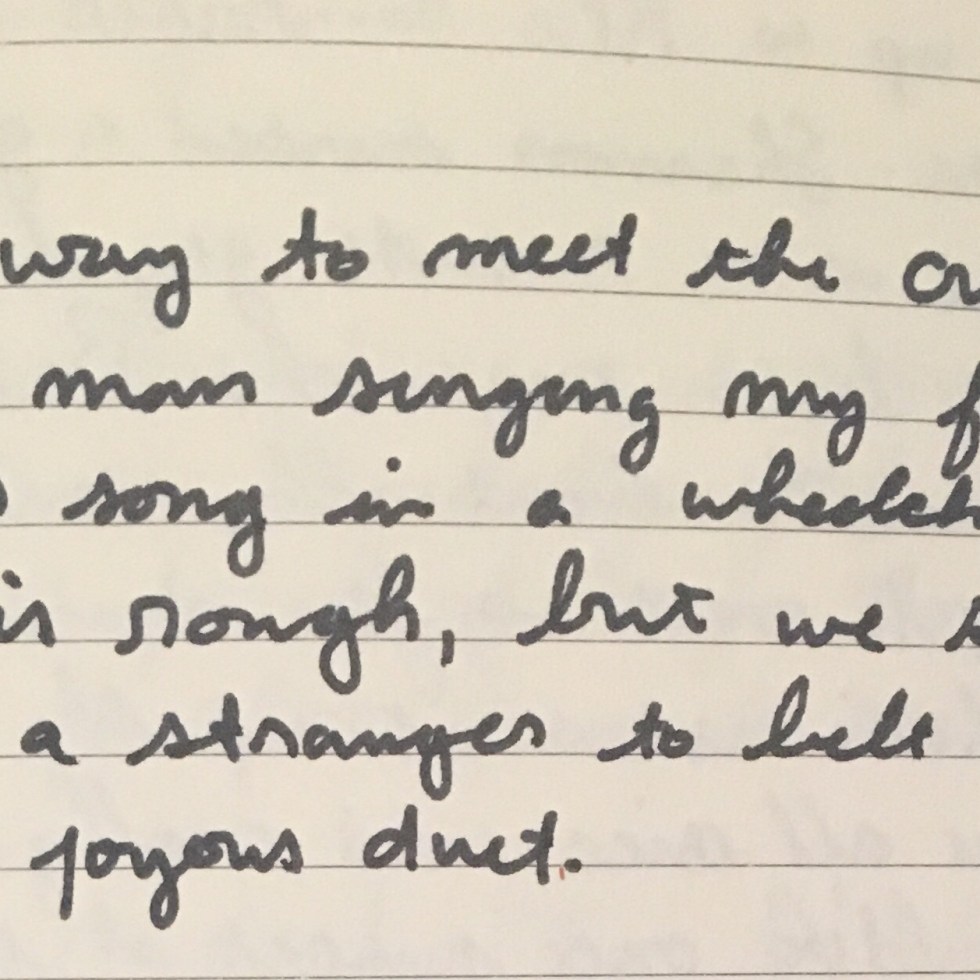 way to meet the
man singing my
song in a
rough, but we
a stranger to belt
joyous duet.